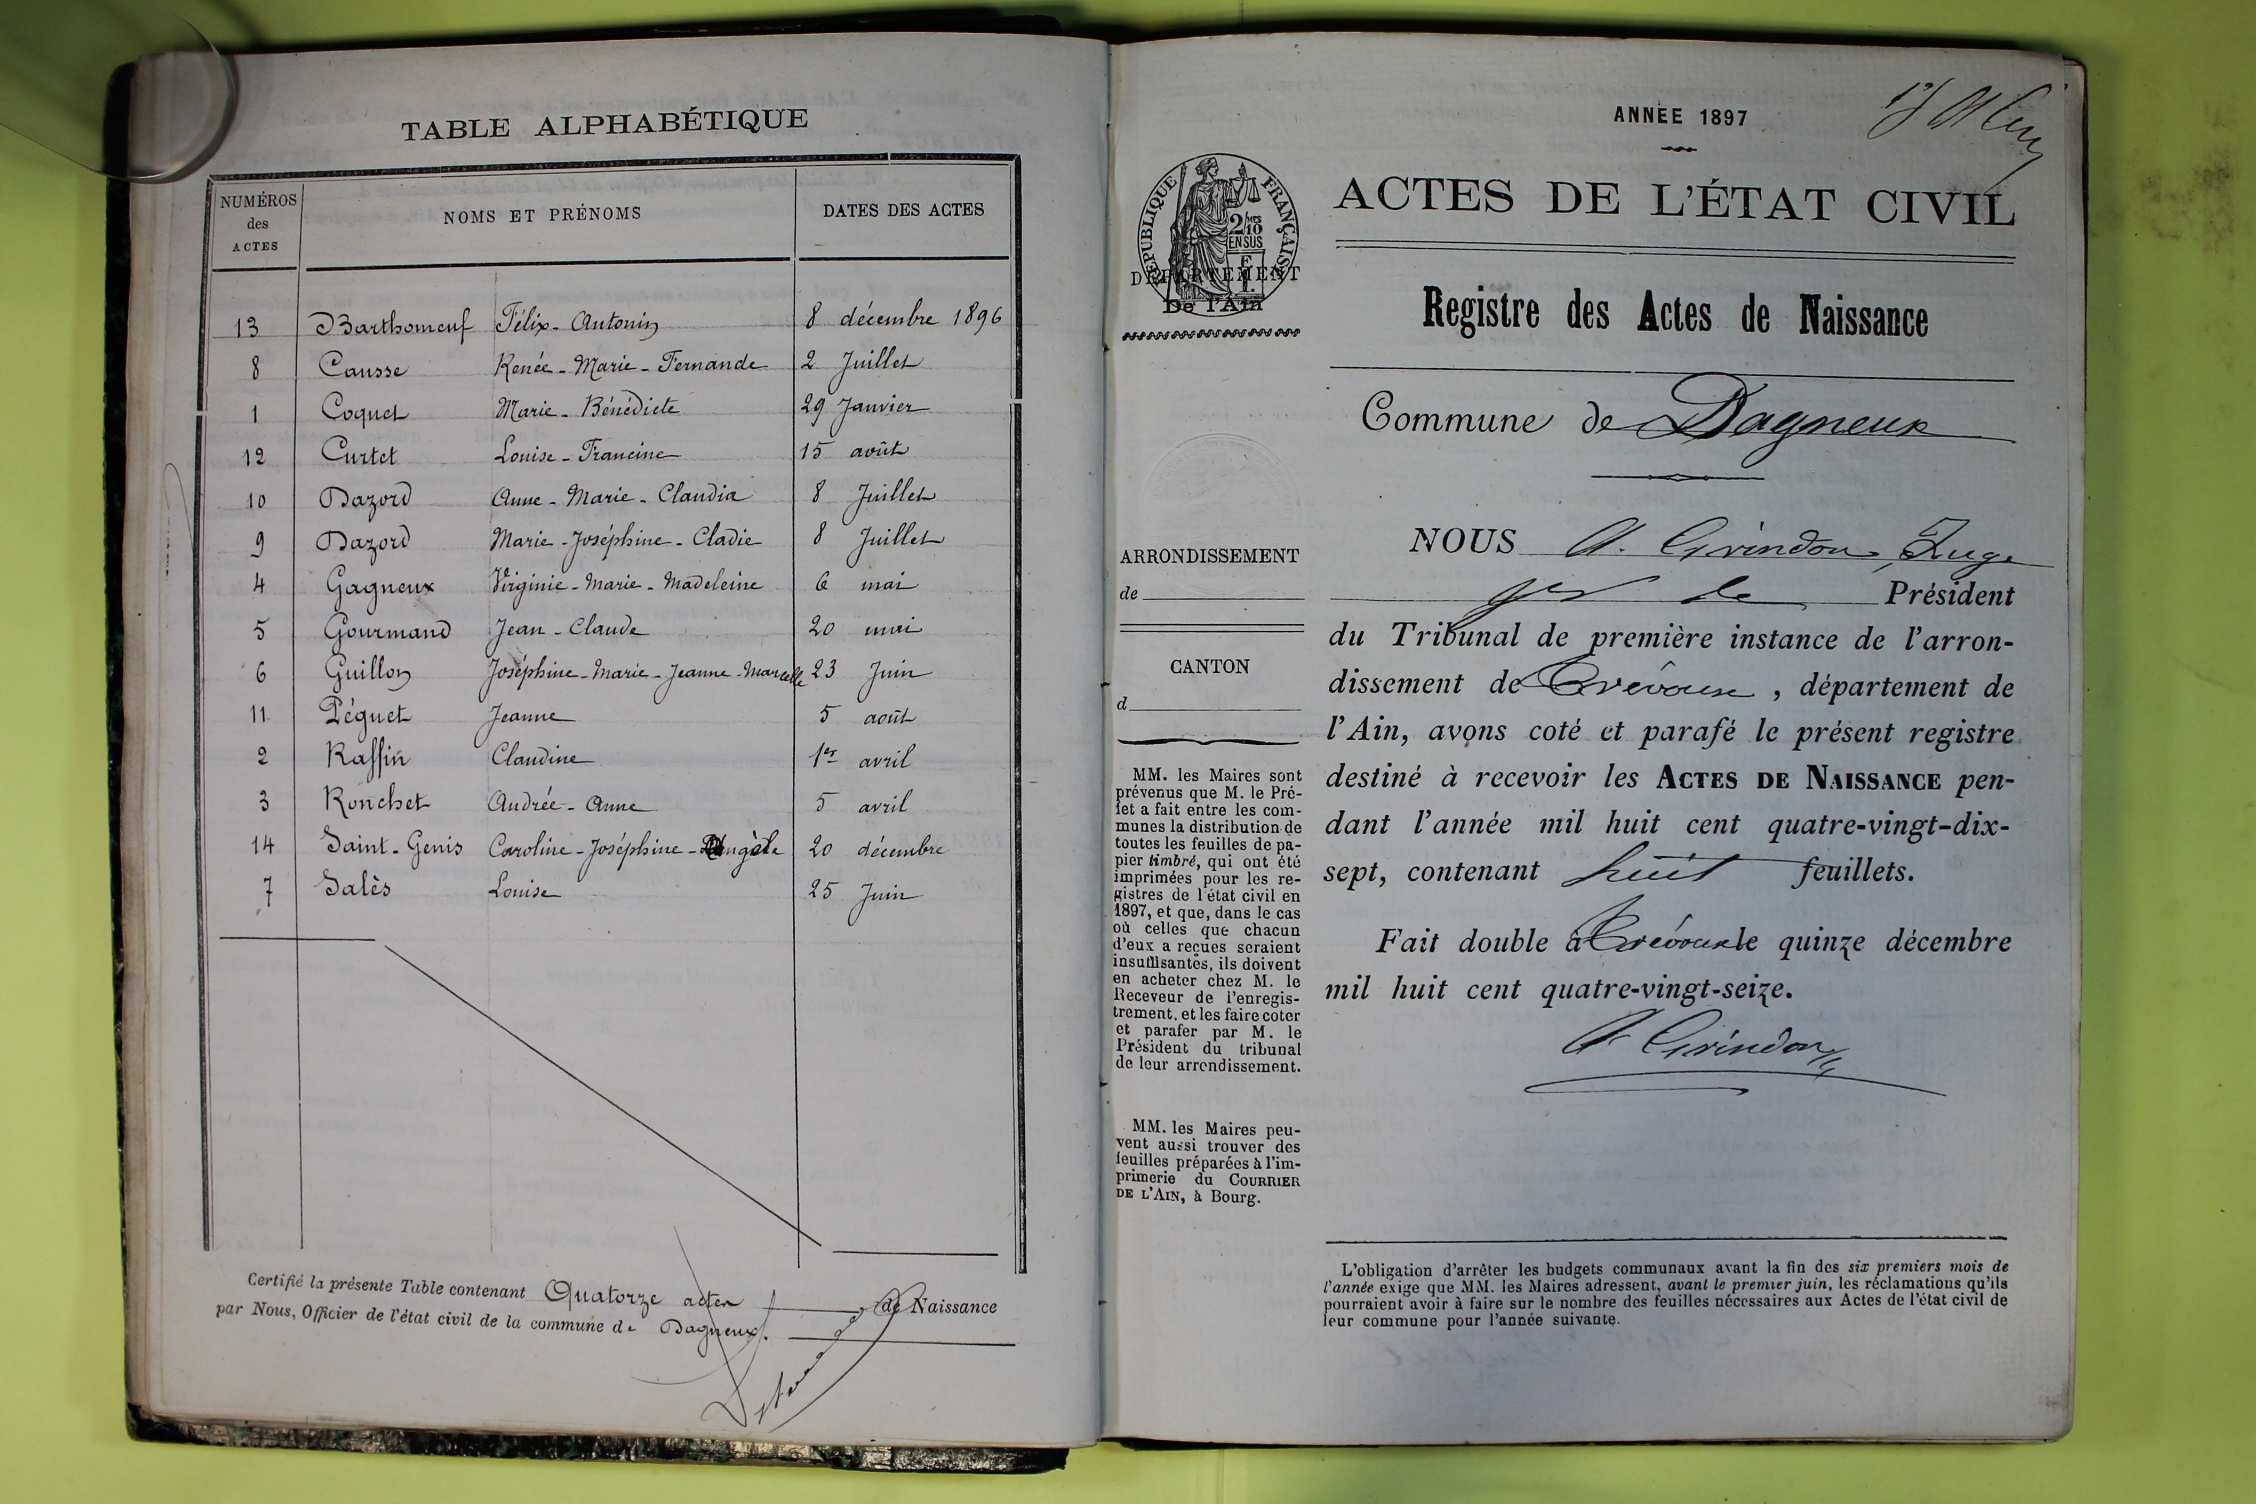 TABLE ALPHABÉTIQUE
NUMÉROS des ACTES NOMS ET PRÉNOMS DATES DES ACTES
13 Barthomeuf Félix-Antonin 8 décembre 1896
8 Causse Renée-Marie-Fernande 2 Juillet
1 Coquet Marie-Bénédicte 29 Janvier
12 Curtet Louise-Francine 15 août
10 Dazord Anne-Marie-Claudia 8 Juillet
9 Dazord Marie-Joséphine-Cladie 8 Juillet
4 Gagneux Virginie-Marie-Madeleine 6 mai
5 Gourmand Jean-Claude 20 mai
6 Guillon Joséphine-Marie-Jeanne-Marcelle 23 Juin
11 Péguet Jeanne 5 août
2 Raffin Claudine 1er avril
3 Ronchet Andrée-Anne 5 avril
14 Saint-Genis Caroline-Joséphine-Angèle 20 décembre
7 Salès Louise 25 Juin
Certifié la présente Table contenant Quatorze actes de Naissance
par Nous, Officier de l'état civil de la commune de Dagneux.
ANNÉE 1897
ACTES DE L'ÉTAT CIVIL
RÉPUBLIQUE FRANÇAISE
2/10
EN SUS
DÉPARTEMENT
De l'Ain
Registre des Actes de Naissance
Commune de Dagneux
ARRONDISSEMENT
de
CANTON
d
MM. les Maires sont
prévenus que M. le Pré-
fet a fait entre les com-
munes la distribution de
toutes les feuilles de pa-
pier timbré, qui ont été
imprimées pour les re-
gistres de l'état civil en
1897, et que, dans le cas
où celles que chacun
d'eux a reçues seraient
insuffisantes, ils doivent
en acheter chez M. le
Receveur de l'enregis-
trement, et les faire coter
et parafer par M. le
Président du tribunal
de leur arrondissement.
MM. les Maires peu-
vent aussi trouver des
feuilles préparées à l'im-
primerie du COURRIER
DE L'AIN, à Bourg.
NOUS A. Grindon, Juge
Président
du Tribunal de première instance de l'arron-
dissement de Trévoux, département de
l'Ain, avons coté et parafé le présent registre
destiné à recevoir les ACTES DE NAISSANCE pen-
dant l'année mil huit cent quatre-vingt-dix-
sept, contenant huit feuillets.
Fait double à Trévoux le quinze décembre
mil huit cent quatre-vingt-seize.
A. Grindon
L'obligation d'arrêter les budgets communaux avant la fin des six premiers mois de
l'année exige que MM. les Maires adressent, avant le premier juin, les réclamations qu'ils
pourraient avoir à faire sur le nombre des feuilles nécessaires aux Actes de l'état civil de
leur commune pour l'année suivante.